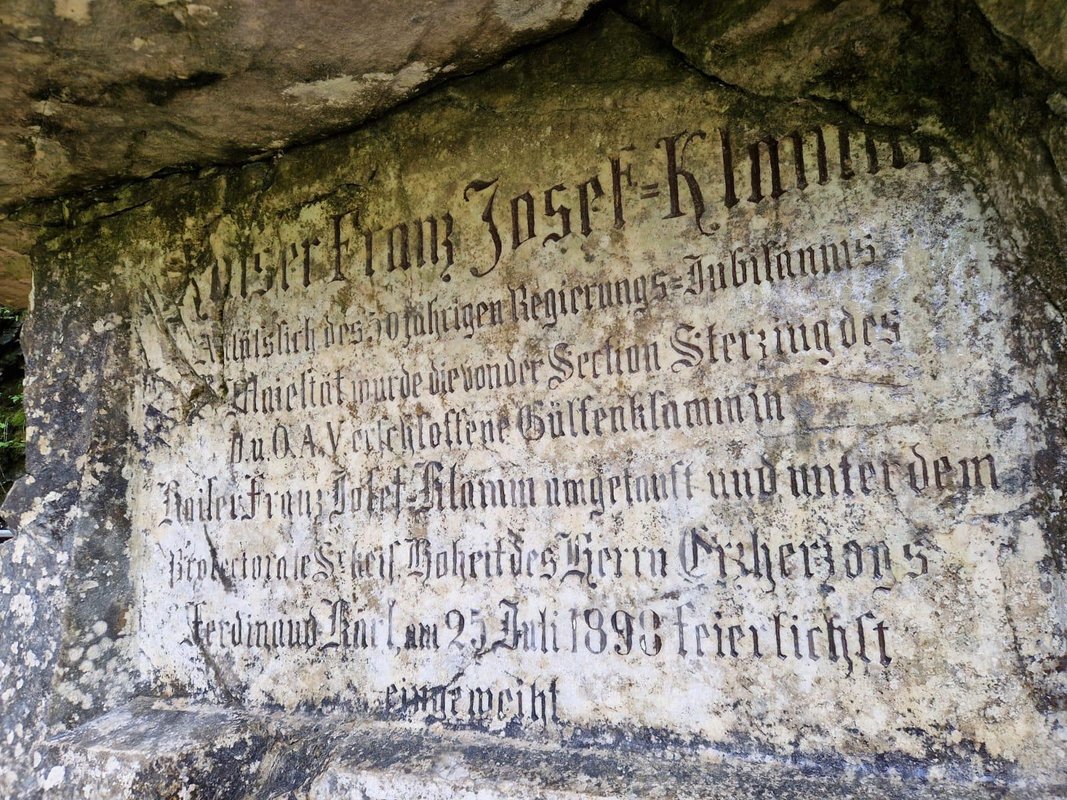 Kaiser Franz Josef=Klamm
Anläislich des 50 jährigen Regierungs=Jubiläums
Majestät wurde die von der Section Sterzing des
D.u.O.A.V erschlossene Gilfenklamm in
Kaiser Franz Josef=Klamm umgetauft und unter dem
Protectorate Sr. keis. Hoheit des Herrn Erzherzogs
Ferdinand Karl, am 25 Juli 1898 feierlichst
eingeweiht